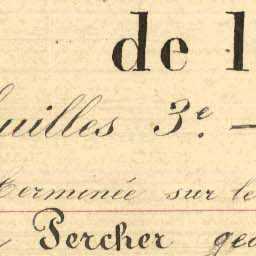 de l
uilles 3e. —
terminée sur le
Percher geo